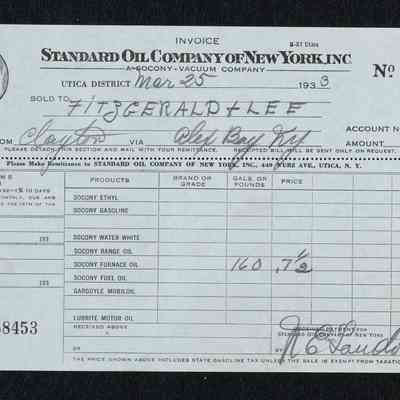 INVOICE
B-27 Utica
STANDARD OIL COMPANY OF NEW YORK, INC.
A SOCONY-VACUUM COMPANY
No
UTICA DISTRICT Mar 25 193 3
SOLD TO FITZGERALD + LEE
ACCOUNT NO
OM Clayton VIA Alex Bay Ny AMOUNT
PLEASE DETACH THIS SECTION AND MAIL WITH YOUR REMITTANCE. RECEIPTED BILL WILL NOT BE SENT ON
Please Make Remittance to STANDARD OIL COMPANY OF NEW YORK, INC., UTICA, N. Y.
PRODUCTS BRAND OR GRADE GALS. OR POUNDS PRICE
10 DAYS
SOCONY ETHYL
SOCONY GASOLINE
193
SOCONY WATER WHITE
SOCONY RANGE OIL
193
SOCONY FURNACE OIL 160 .7½
SOCONY FUEL OIL
GARGOYLE MOBILOIL
8453
LUBRITE MOTOR OIL
REC'D ABOVE
BY
THE PRICE SHOWN ABOVE INCLUDES STATE GASOLINE TAX UNLESS THE SALE IS EXEMPT FROM